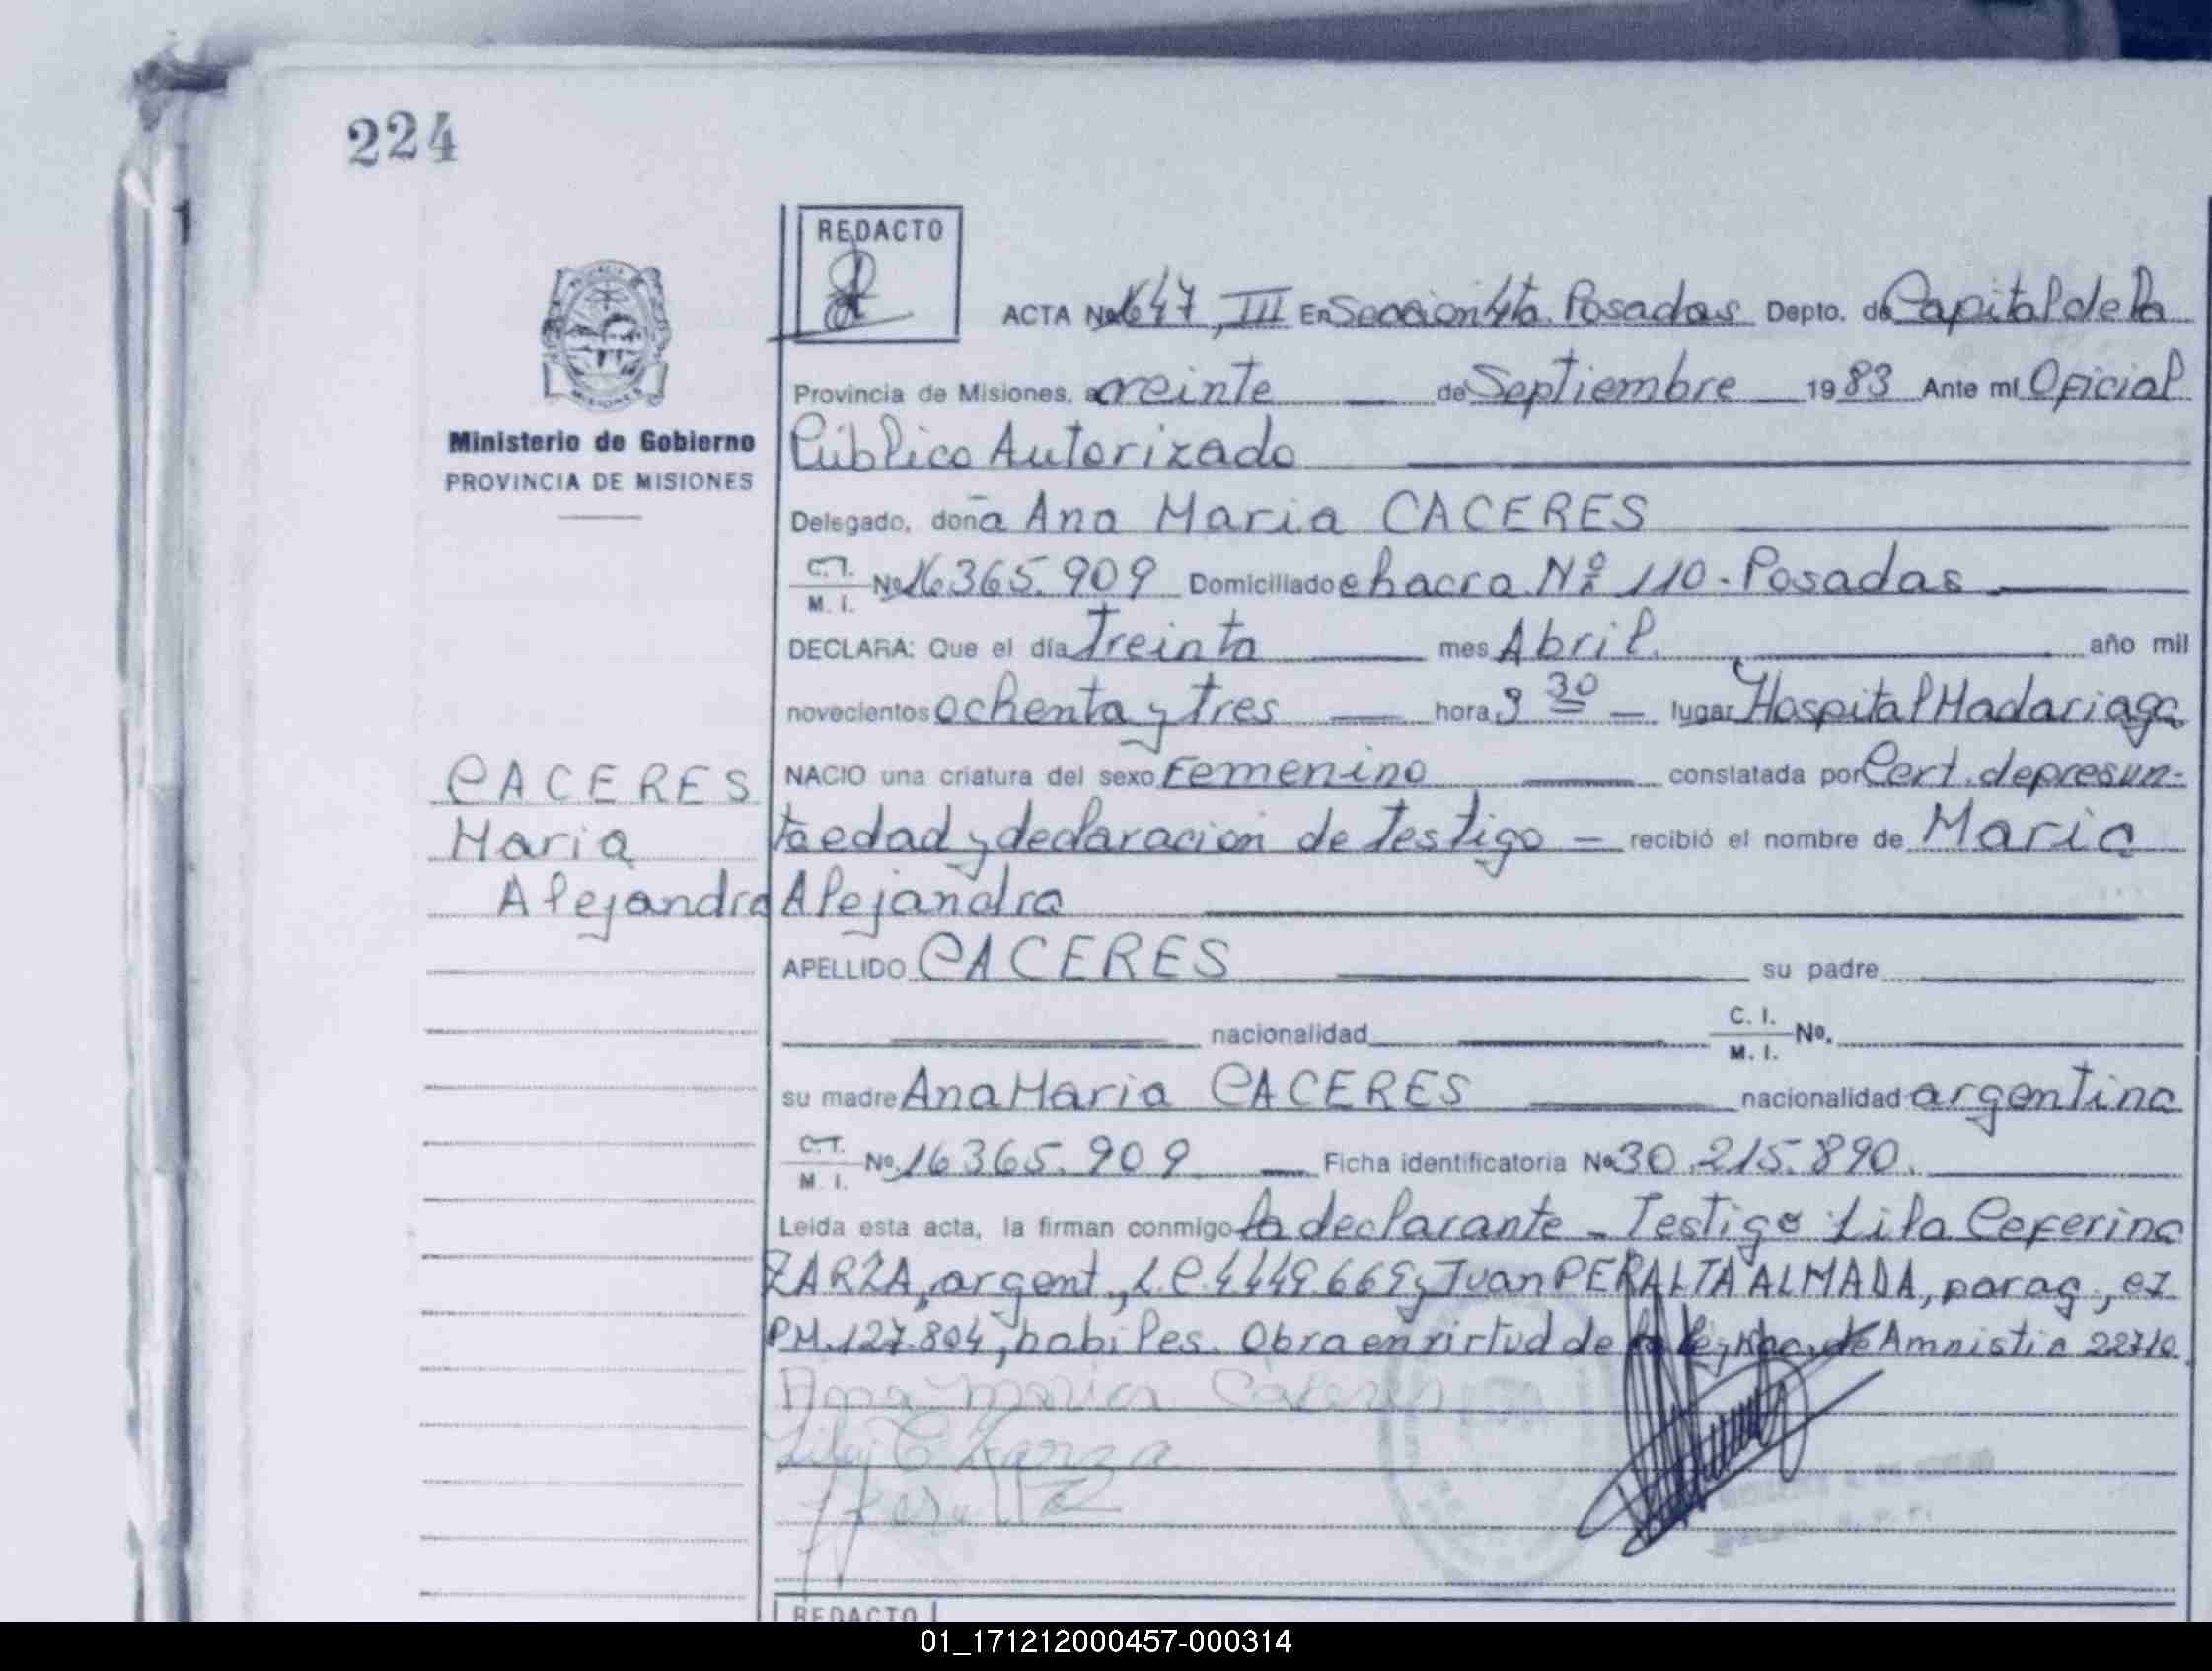 224
REDACTO
ACTA Nº 1647, III En Sección 4ta. Posadas Depto. de Capital de la
Provincia de Misiones, a veinte de Septiembre 1983 Ante mí Oficial
Ministerio de Gobierno
PROVINCIA DE MISIONES
Público Autorizado
Delegado, doña Ana Maria CACERES
C.I. M. I. Nº 16365.909 Domiciliado chacra Nº 110 - Posadas
DECLARA: Que el día Treinta mes Abril. año mil
novecientos ochenta y tres hora 9 30 lugar Hospital Madariaga
NACIO una criatura del sexo Femenino constatada por Cert. de presun-
ta edad y declaracion de Testigo - recibió el nombre de Maria
Alejandra
CACERES
Maria
Alejandra
APELLIDO CACERES su padre
nacionalidad C. I. M. I. Nº.
su madre Ana Maria CACERES nacionalidad argentina
C.I. M. I. Nº 16365.909 Ficha identificatoria Nº 30.215.890.
Leida esta acta, la firman conmigo la declarante - Testigo Lila Ceferina
ZARZA, argent., L.C. 4449.669 y Juan PERALTA ALMADA, parag.,
PM. 127.804, habiles. Obra en virtud de la ley de Amnistia 22710
Ana Maria Caceres
Lila C Zarza
REDACTO
01_171212000457-000314